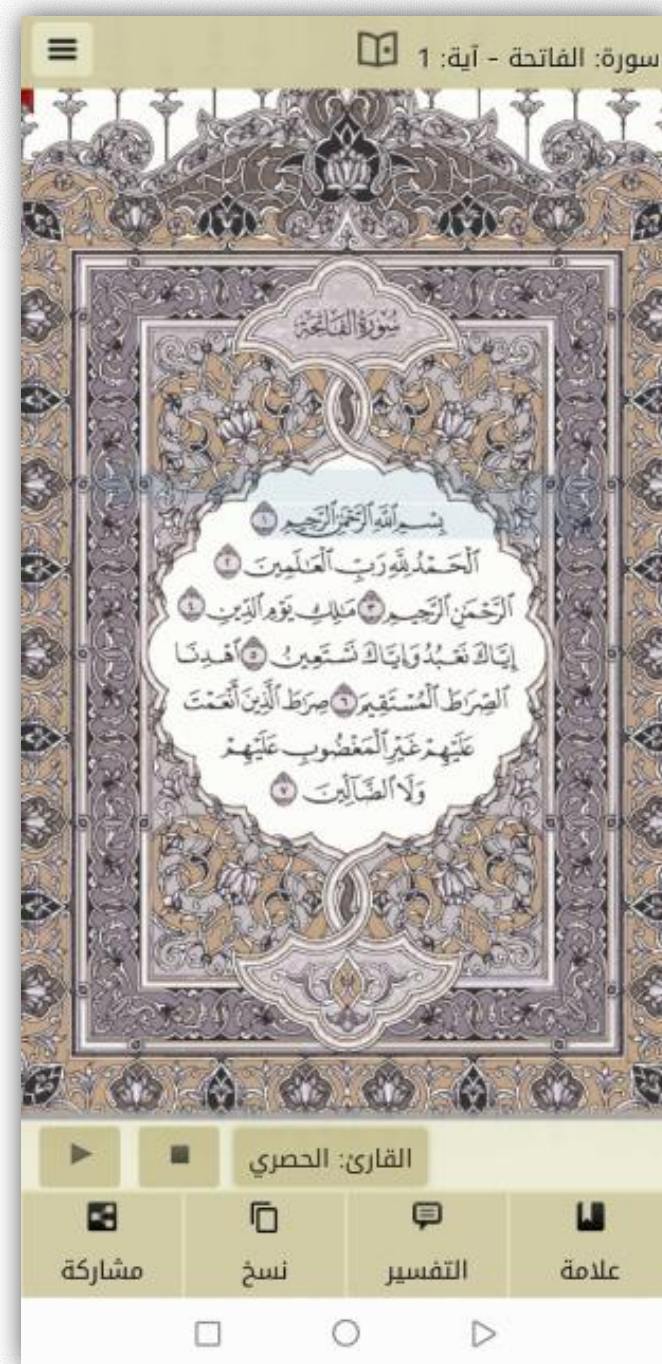 سورة: الفاتحة - آية: 1
سُورَةُ الفَاتِحَةِ
بِسۡمِ ٱللَّهِ ٱلرَّحۡمَٰنِ ٱلرَّحِيمِ ١
ٱلۡحَمۡدُ لِلَّهِ رَبِّ ٱلۡعَٰلَمِينَ ٢
ٱلرَّحۡمَٰنِ ٱلرَّحِيمِ ٣ مَٰلِكِ يَوۡمِ ٱلدِّينِ ٤
إِيَّاكَ نَعۡبُدُ وَإِيَّاكَ نَسۡتَعِينُ ٥ ٱهۡدِنَا
ٱلصِّرَٰطَ ٱلۡمُسۡتَقِيمَ ٦ صِرَٰطَ ٱلَّذِينَ أَنۡعَمۡتَ
عَلَيۡهِمۡ غَيۡرِ ٱلۡمَغۡضُوبِ عَلَيۡهِمۡ
وَلَا ٱلضَّآلِّينَ ٧
القارئ: الحصري
علامة التفسير نسخ مشاركة